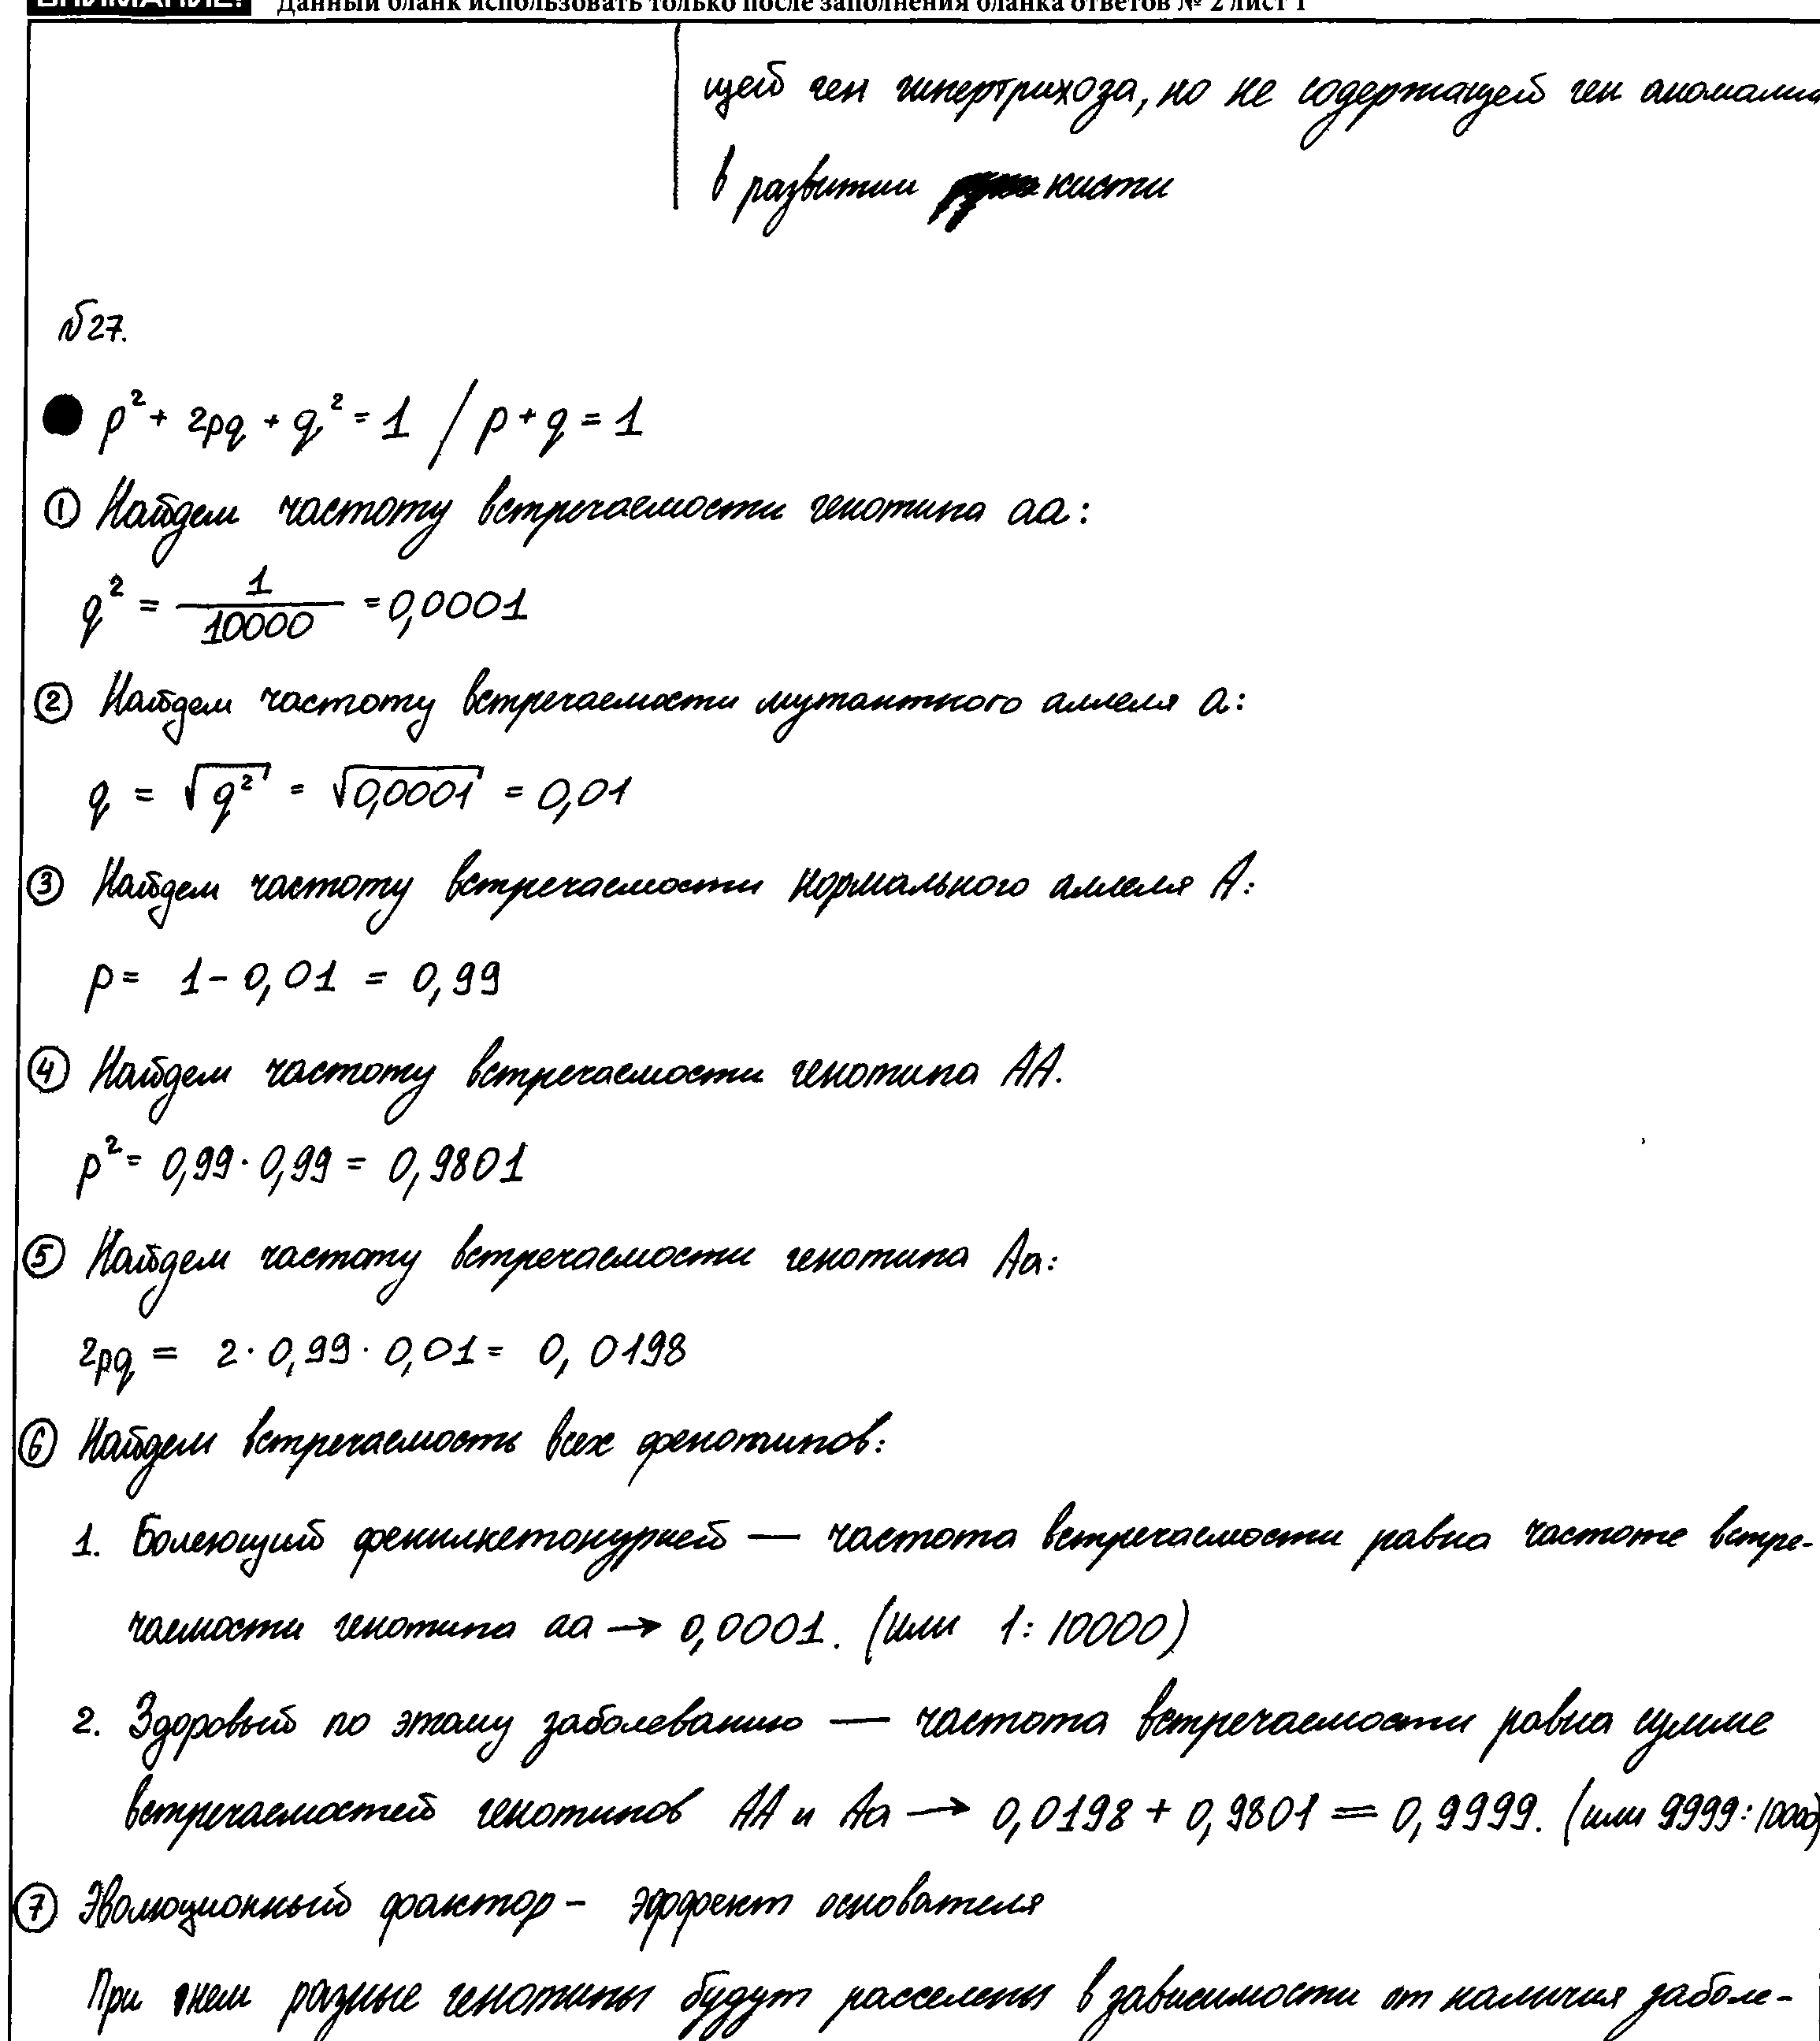 ВНИМАНИЕ! Данный бланк использовать только после заполнения бланка ответов № 2 лист 1
щей ген гипертрихоза, но не содержащей ген аномалии
в развитии кисти
№27.
p² + 2pq + q² = 1 / p + q = 1
① Найдем частоту встречаемости генотипа aa:
q² = 1/10000 = 0,0001
② Найдем частоту встречаемости мутантного аллеля a:
q = √q² = √0,0001 = 0,01
③ Найдем частоту встречаемости нормального аллеля A:
p = 1 - 0,01 = 0,99
④ Найдем частоту встречаемости генотипа AA.
p² = 0,99 · 0,99 = 0,9801
⑤ Найдем частоту встречаемости генотипа Aa:
2pq = 2 · 0,99 · 0,01 = 0,0198
⑥ Найдем встречаемость всех фенотипов:
1. Болеющий фенилкетонурией — частота встречаемости равна частоте встре-
чаемости генотипа aa → 0,0001. (или 1:10000)
2. Здоровый по этому заболеванию — частота встречаемости равна сумме
встречаемостей генотипов AA и Aa → 0,0198 + 0,9801 = 0,9999. (или 9999:10000)
⑦ Эволюционный фактор - эффект основателя
При нем разные генотипы будут расселены в зависимости от наличия заболе-